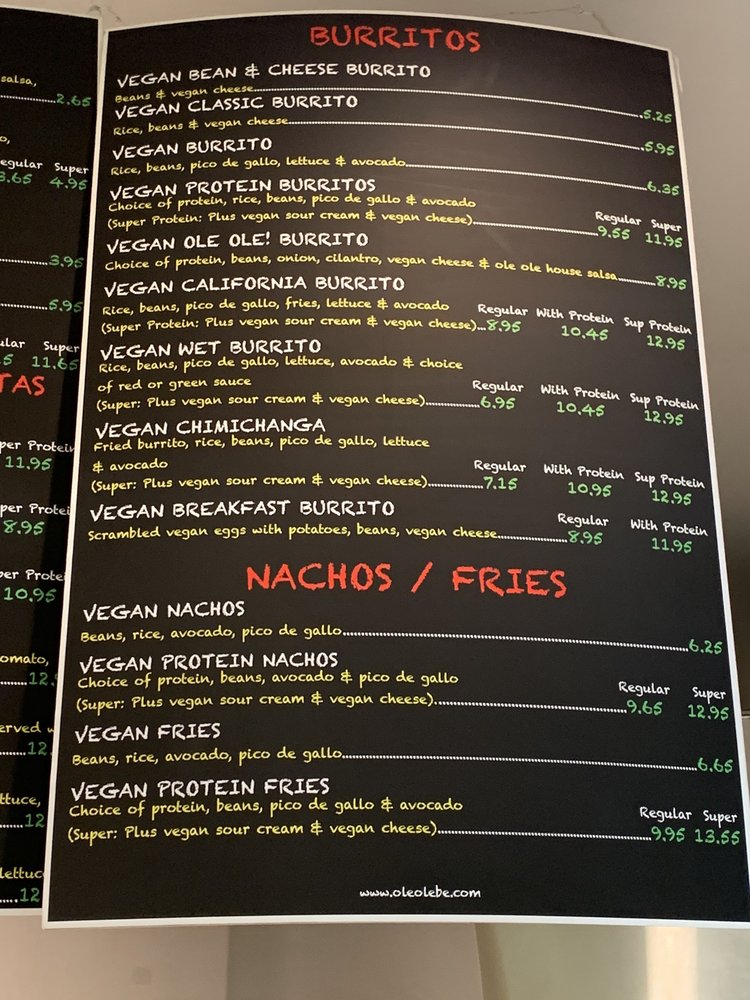 salsa,
2.65
o,
egular Super
3.65 4.95
3.95
5.95
ular Super
5 11.65
TAS
per Protein
11.95
per Protei
8.95
per Protei
10.95
omato,
12.
erved w
12
ttuce,
12
lettuc
12
BURRITOS
VEGAN BEAN & CHEESE BURRITO
Beans & vegan cheese 5.25
VEGAN CLASSIC BURRITO
Rice, beans & vegan cheese 5.95
VEGAN BURRITO
Rice, beans, pico de gallo, lettuce & avocado 6.35
VEGAN PROTEIN BURRITOS
Choice of protein, rice, beans, pico de gallo & avocado
Regular Super
(Super Protein: Plus vegan sour cream & vegan cheese) 9.55 11.95
VEGAN OLE OLE! BURRITO
Choice of protein, beans, onion, cilantro, vegan cheese & ole ole house salsa 8.95
VEGAN CALIFORNIA BURRITO
Rice, beans, pico de gallo, fries, lettuce & avocado Regular With Protein Sup Protein
(Super Protein: Plus vegan sour cream & vegan cheese)...8.95 10.45 12.95
VEGAN WET BURRITO
Rice, beans, pico de gallo, lettuce, avocado & choice
of red or green sauce Regular With Protein Sup Protein
(Super: Plus vegan sour cream & vegan cheese) 6.95 10.45 12.95
VEGAN CHIMICHANGA
Fried burrito, rice, beans, pico de gallo, lettuce
& avocado Regular With Protein Sup Protein
(Super: Plus vegan sour cream & vegan cheese) 7.15 10.95 12.95
VEGAN BREAKFAST BURRITO
Regular With Protein
Scrambled vegan eggs with potatoes, beans, vegan cheese 8.95 11.95
NACHOS / FRIES
VEGAN NACHOS
Beans, rice, avocado, pico de gallo 6.25
VEGAN PROTEIN NACHOS
Choice of protein, beans, avocado & pico de gallo Regular Super
(Super: Plus vegan sour cream & vegan cheese) 9.65 12.95
VEGAN FRIES
Beans, rice, avocado, pico de gallo 6.65
VEGAN PROTEIN FRIES
Choice of protein, beans, pico de gallo & avocado Regular Super
(Super: Plus vegan sour cream & vegan cheese) 9.95 13.55
www.oleolebe.com